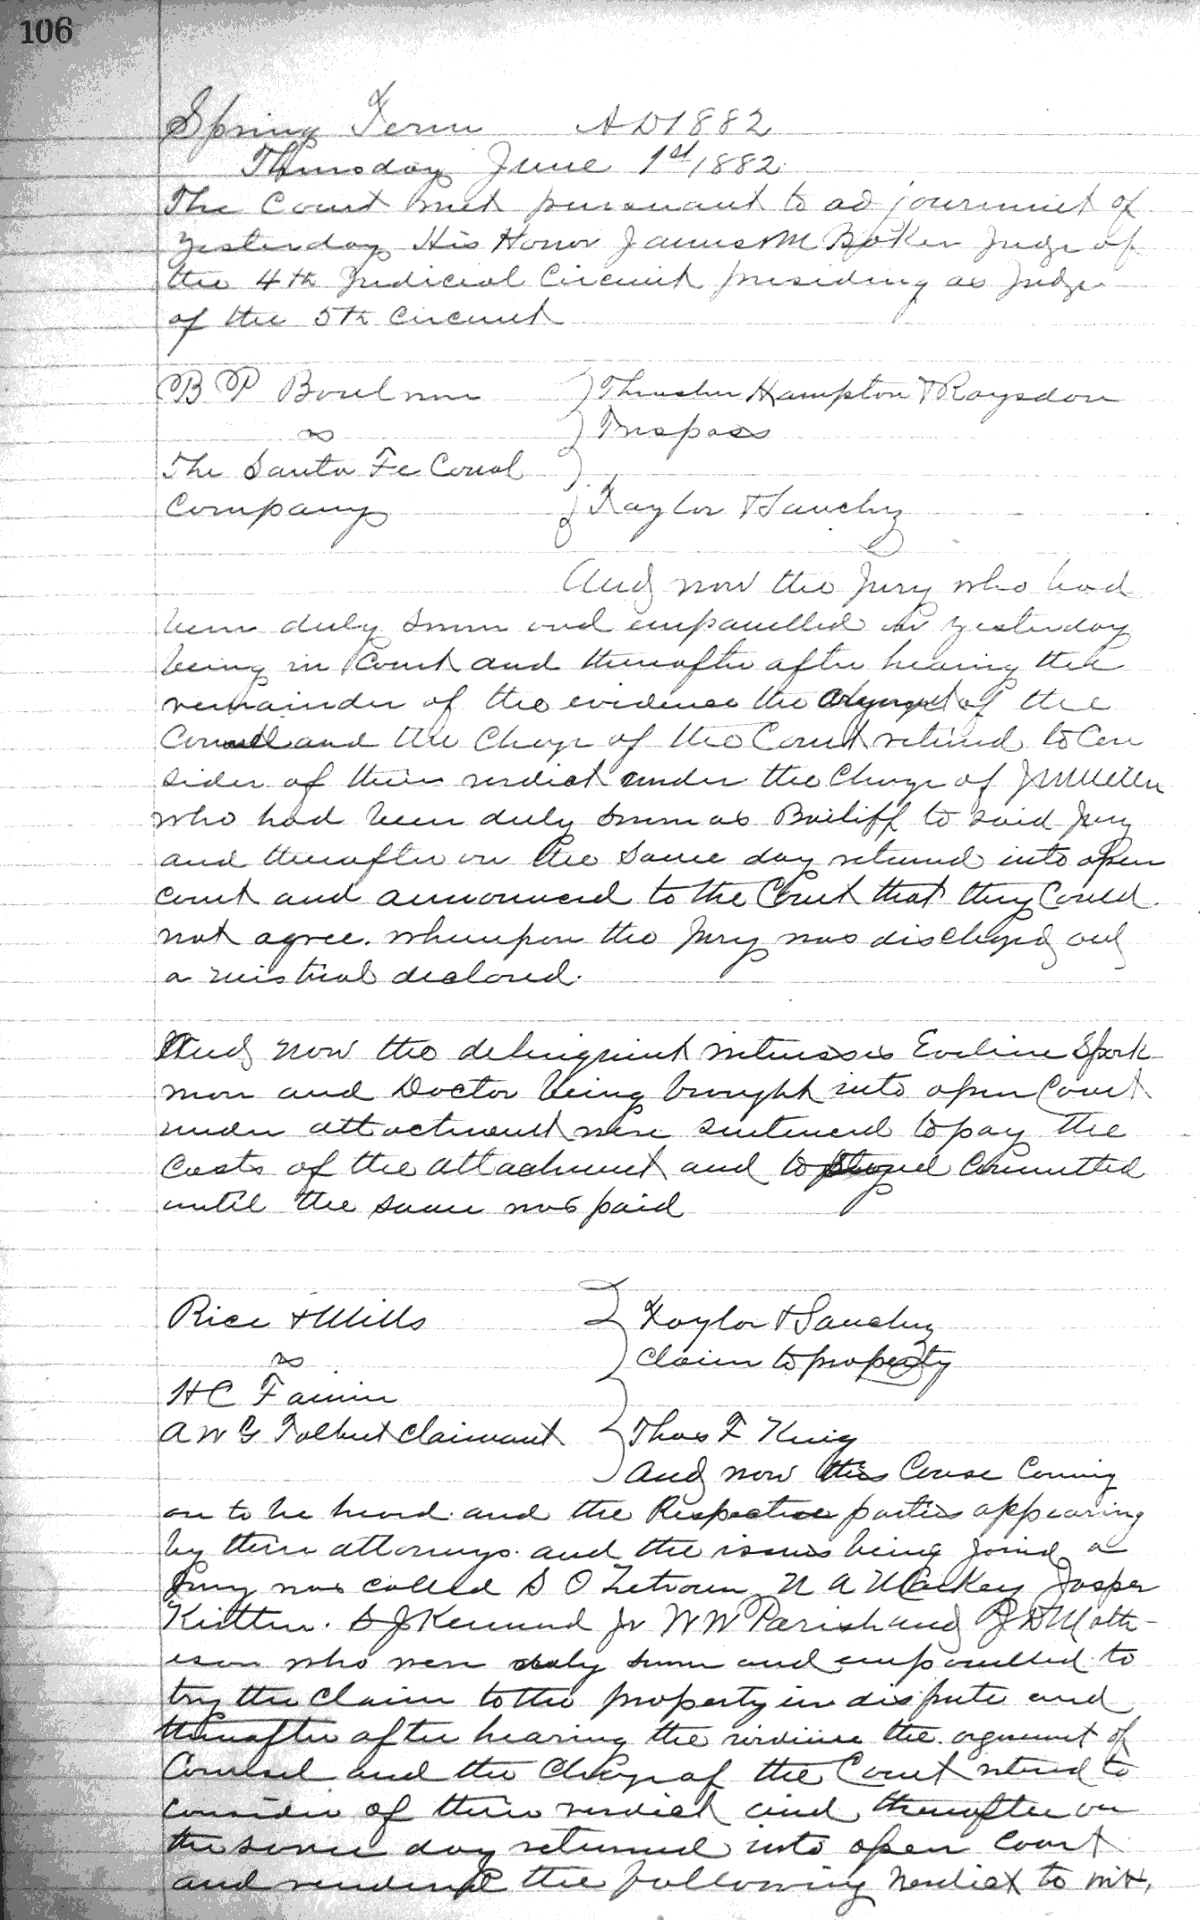 106
Spring Term AD 1882
Thursday June 1st 1882.
The Court met pursuant to adjournment of
yesterday His Honor James M Baker Judge of
the 4th Judicial Circuit presiding as Judge
of the 5th Circuit
B P Boulware } Thrasher Hampton & Raysdon
vs } Trespass
The Santa Fe Canal
Company } Taylor & Sanchez
And now the Jury who had
been duly sworn and empanelled on yesterday
being in Court and thereafter after hearing the
remainder of the evidence the argument of the
Counsel and the Charge of the Court retired to Con
sider of their verdict under the Charge of J M
who had been duly sworn as Bailiff to said Jury
and thereafter on the same day returned into open
court and announced to the Court that they Could
not agree. whereupon the Jury was discharged and
a mistrial declared.
And now the delinquent witnesses Eveline Spark
man and Doctor being brought into open Court
under attactment were sentenced to pay the
Costs of the attachment and to stand Committed
until the same was paid
Rice & Mills } Taylor & Sanchez
vs Claim to property
H C
A W G Tolbert Claimant } Thos F King
And now this Cause Coming
on to be heard and the Respective parties appearing
by their attorneys and the issues being joined a
Jury was called S O N A Mackey Jasper
S J Kennard Jr W W Parish and Math-
eson who were duly sworn and empanelled to
try the Claim to the property in dispute and
thereafter after hearing the evidence the argument of
Counsel and the Charge of the Court retired to
consider of their verdict and thereafter on
the same day returned into open Court
and rendered the following Verdict to wit,